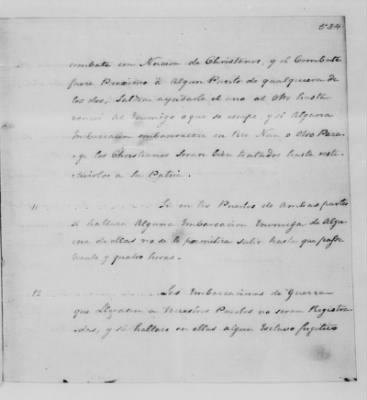 524
combate con Nacion de Christianos, y el Combate
fuere Proximo à algun Puerto de qualquiera de
los dos, saldran ayudarle el uno al otro hasta
Enemigo ò que se escape, y si Alguna
Embarcacion en Nun ò Otro Para-
ge los Christianos seran bien tratados hasta resti-
tuirlos a su Patria.
11 Si en los Puertos de Ambas partes
se hallara Alguna Embarcacion Enemiga de Algu-
na de ellas no se le permitira salir hasta que pasen
veinte y quatro horas.
12 Las Embarcaciones de Guerra
que Llegasen a Nuestros Puertos no seran Registra-
das, y si hallare en ellas algun Esclavo fugitivo